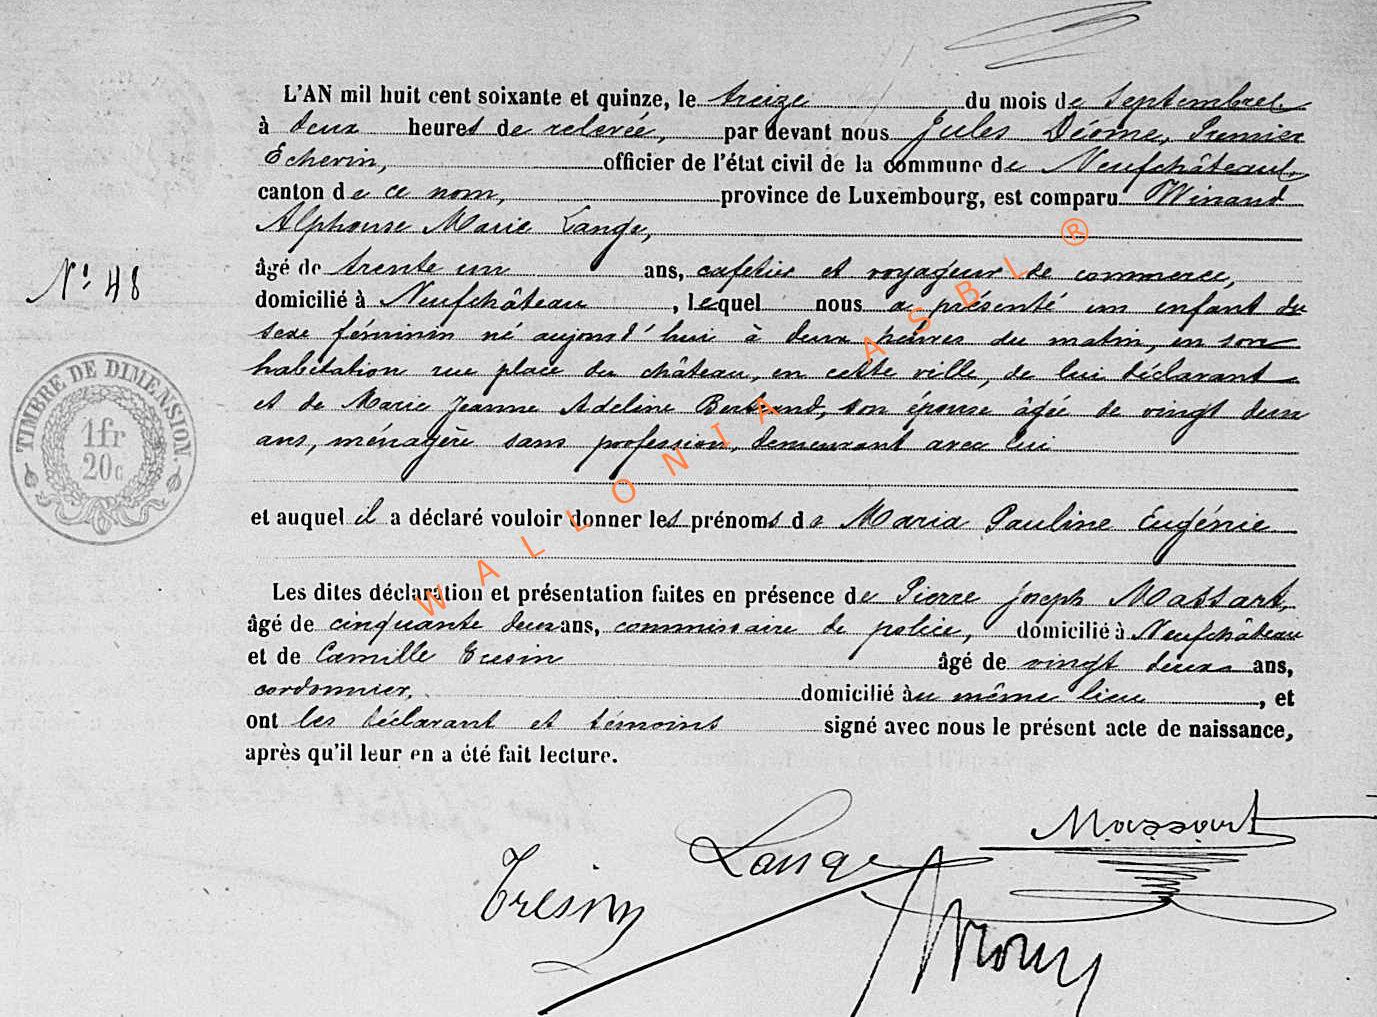 L'AN mil huit cent soixante et quinze, le treize du mois de Septembre
à deux heures de relevée, par devant nous Jules Déome, Premier
Echevin, officier de l'état civil de la commune de Neufchâteau,
canton de ce nom, province de Luxembourg, est comparu Winand
Alphonse Marie Lange,
âgé de trente un ans, cafetier et voyageur de commerce,
domicilié à Neufchâteau, lequel nous a présenté un enfant du
sexe féminin né aujourd'hui à deux heures du matin, en son
habitation rue place du château, en cette ville, de lui déclarant
et de Marie Jeanne Adeline Bertrand, son épouse âgée de vingt deux
ans, ménagère sans profession, demeurant avec lui
et auquel il a déclaré vouloir donner les prénoms de Maria Pauline Eugénie
Les dites déclaration et présentation faites en présence de Pierre Joseph Massart,
âgé de cinquante deux ans, commissaire de police, domicilié à Neufchâteau
et de Camille Tresin âgé de vingt deux ans,
cordonnier, domicilié au même lieu, et
ont les déclarant et témoins signé avec nous le présent acte de naissance,
après qu'il leur en a été fait lecture.
N° 48
TIMBRE DE DIMENSION.
1fr
20c
WALLONIA ASBL ®
Massart
Lange
Tresin